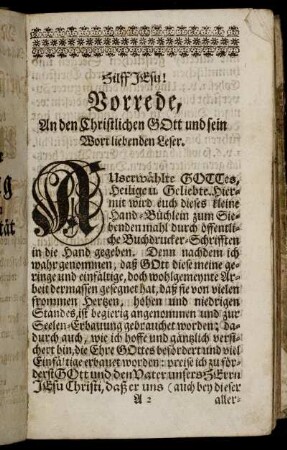 Hilff JEsu!
Vorrede,
An den Christlichen GOtt und sein
Wort liebenden Leser.
AUserwählte GOTTes,
Heilige u. Geliebte. Hier-
mit wird euch dieses kleine
Hand-Büchlein zum Sie-
bendenmahl durch öffentli-
che Buchdrucker-Schrifften
in die Hand gegeben. Denn nachdem ich
wahrgenommen, daß GOtt diese meine ge-
ringe und einfältige, doch wohlgemeynte Ar-
beit dermassen gesegnet hat, daß sie von vielen
frommen Hertzen, hohen und niedrigen
Standes, ist begierig angenommen und zur
Seelen-Erbauung gebrauchet worden; da-
durch auch, wie ich hoffe und gäntzlich versi-
chert bin, die Ehre GOttes befördert und viel
Einfältige erbauet worden: preise ich zu för-
derst GOtt und den Vater unsers HErrn
JEsu Christi, daß er uns (auch bey dieser
A 2 aller-